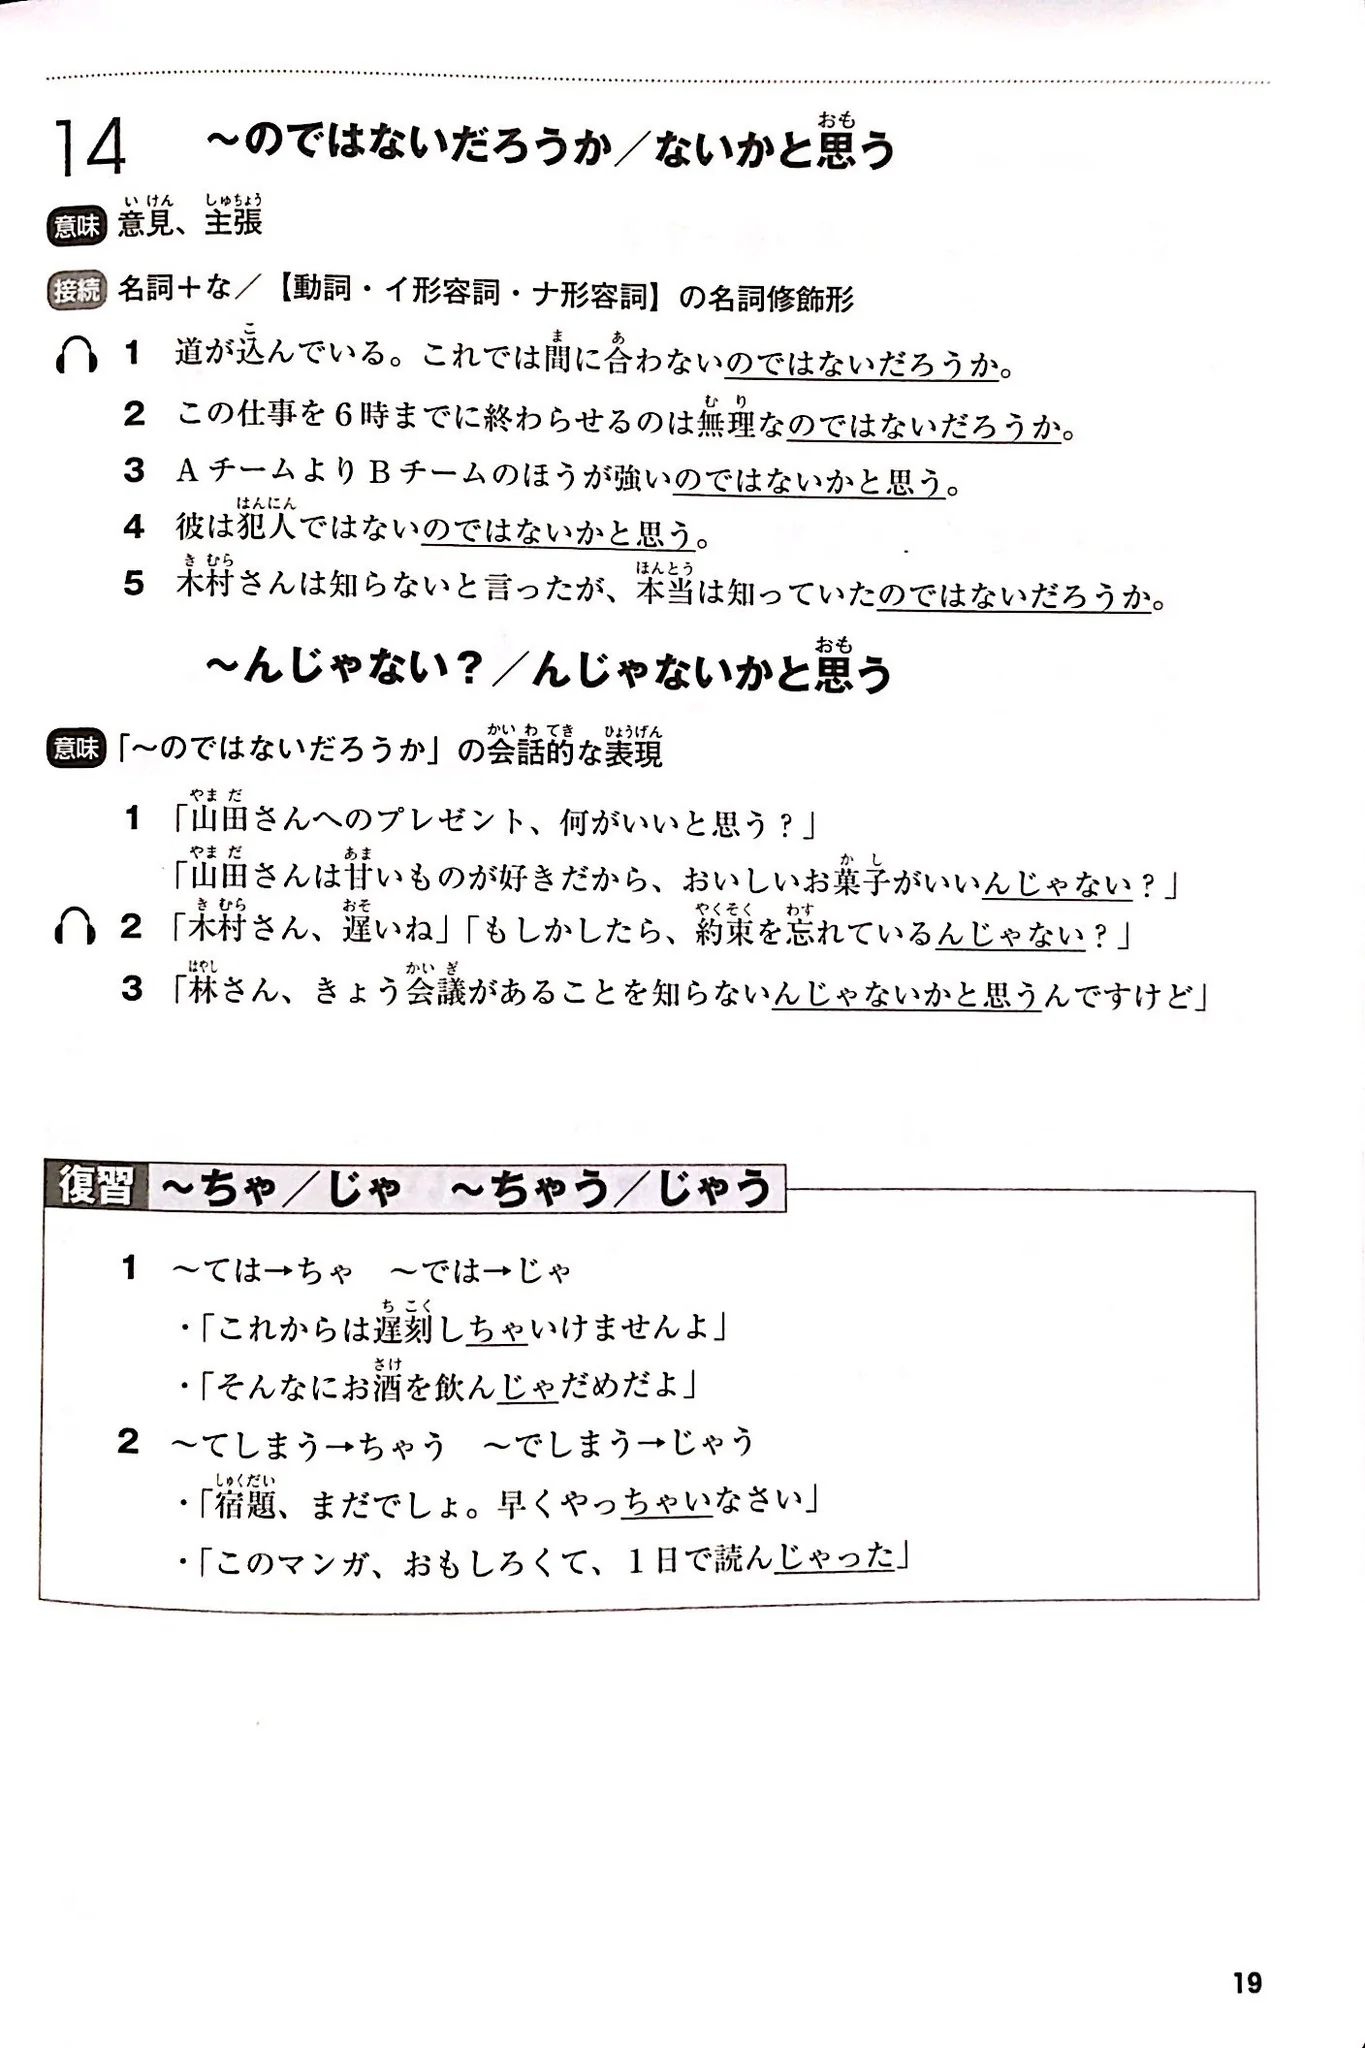 14 ～のではないだろうか／ないかと思う
意味 意見、主張
接続 名詞＋な／【動詞・イ形容詞・ナ形容詞】の名詞修飾形
1 道が込んでいる。これでは間に合わないのではないだろうか。
2 この仕事を6時までに終わらせるのは無理なのではないだろうか。
3 AチームよりBチームのほうが強いのではないかと思う。
4 彼は犯人ではないのではないかと思う。
5 木村さんは知らないと言ったが、本当は知っていたのではないだろうか。
～んじゃない？／んじゃないかと思う
意味 「～のではないだろうか」の会話的な表現
1 「山田さんへのプレゼント、何がいいと思う？」
「山田さんは甘いものが好きだから、おいしいお菓子がいいんじゃない？」
2 「木村さん、遅いね」「もしかしたら、約束を忘れているんじゃない？」
3 「林さん、きょう会議があることを知らないんじゃないかと思うんですけど」
復習 ～ちゃ／じゃ ～ちゃう／じゃう
1 ～ては→ちゃ ～では→じゃ
・「これからは遅刻しちゃいけませんよ」
・「そんなにお酒を飲んじゃだめだよ」
2 ～てしまう→ちゃう ～でしまう→じゃう
・「宿題、まだでしょ。早くやっちゃいなさい」
・「このマンガ、おもしろくて、1日で読んじゃった」
19